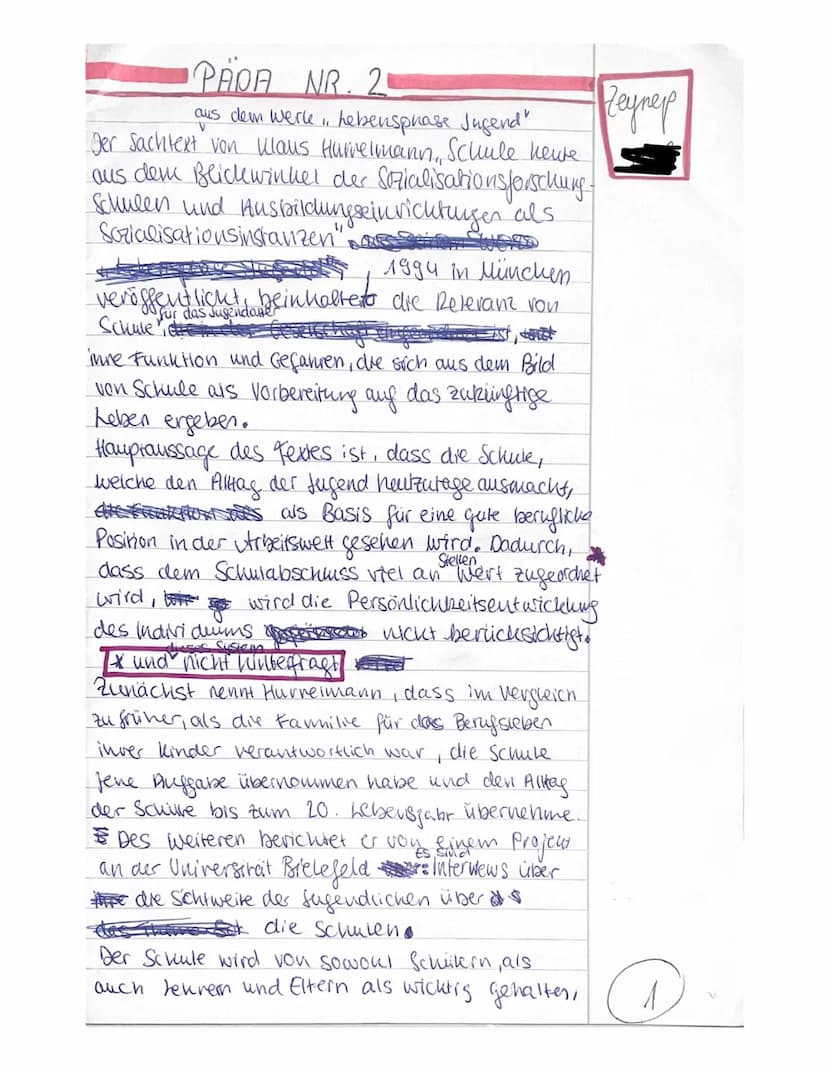 PÄDA NR. 2
Zeynep
aus dem Werk „Lebensphase Jugend"
Der Sachtext von Klaus Hurrelmann „Schule heute
aus dem Blickwinkel der Sozialisationsforschung-
Schulen und Ausbildungseinrichtungen als
Sozialisationsinstanzen"
, 1994 in München
veröffentlicht, beinhaltet die Relevanz von
für das Jugendalter
Schule,
ihre Funktion und Gefahren, die sich aus dem Bild
von Schule als Vorbereitung auf das zukünftige
Leben ergeben.
Hauptaussage des Textes ist, dass die Schule,
welche den Alltag der Jugend heutzutage ausmacht,
als Basis für eine gute berufliche
Position in der Arbeitswelt gesehen wird. Dadurch,
Stellen
dass dem Schulabschluss viel an Wert zugeordnet
wird, wird die Persönlichkeitsentwicklung
des Individiums nicht berücksichtigt.
dieses System
* und nicht hinterfragt
Zunächst nennt Hurrelmann, dass im Vergleich
zu früher, als die Familie für das Berufsleben
ihrer Kinder verantwortlich war, die Schule
jene Aufgabe übernommen habe und den Alltag
der Schüler bis zum 20. Lebensjahr übernehme.
Des weiteren berichtet er von einem Projekt
Es sind
an der Universität Bielefeld Interviews über
die Sichtweite der Jugendlichen über
die Schulen.
Der Schule wird von sowohl Schülern, als
auch Lehrern und Eltern als wichtig gehalten,
1